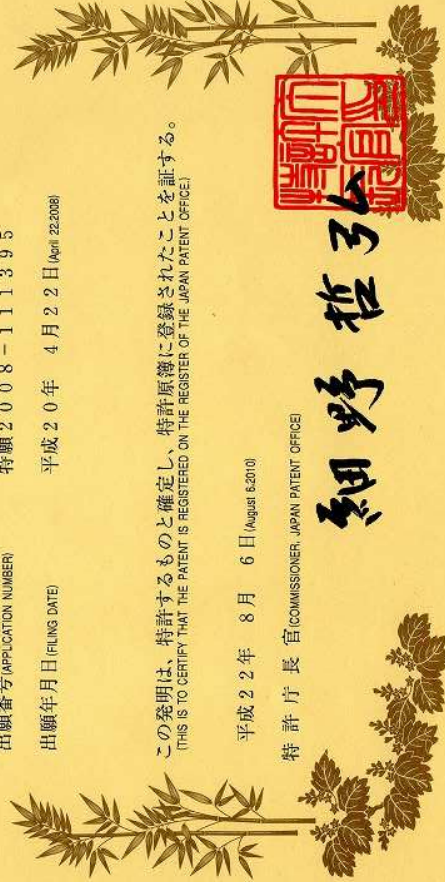 出願番号(APPLICATION NUMBER) 特願2008-111395
出願年月日(FILING DATE) 平成20年 4月22日(April 22,2008)
この発明は、特許するものと確定し、特許原簿に登録されたことを証する。
(THIS IS TO CERTIFY THAT THE PATENT IS REGISTERED ON THE REGISTER OF THE JAPAN PATENT OFFICE.)
平成22年 8月 6日(August 6,2010)
特許庁長官(COMMISSIONER, JAPAN PATENT OFFICE)
細野哲弘